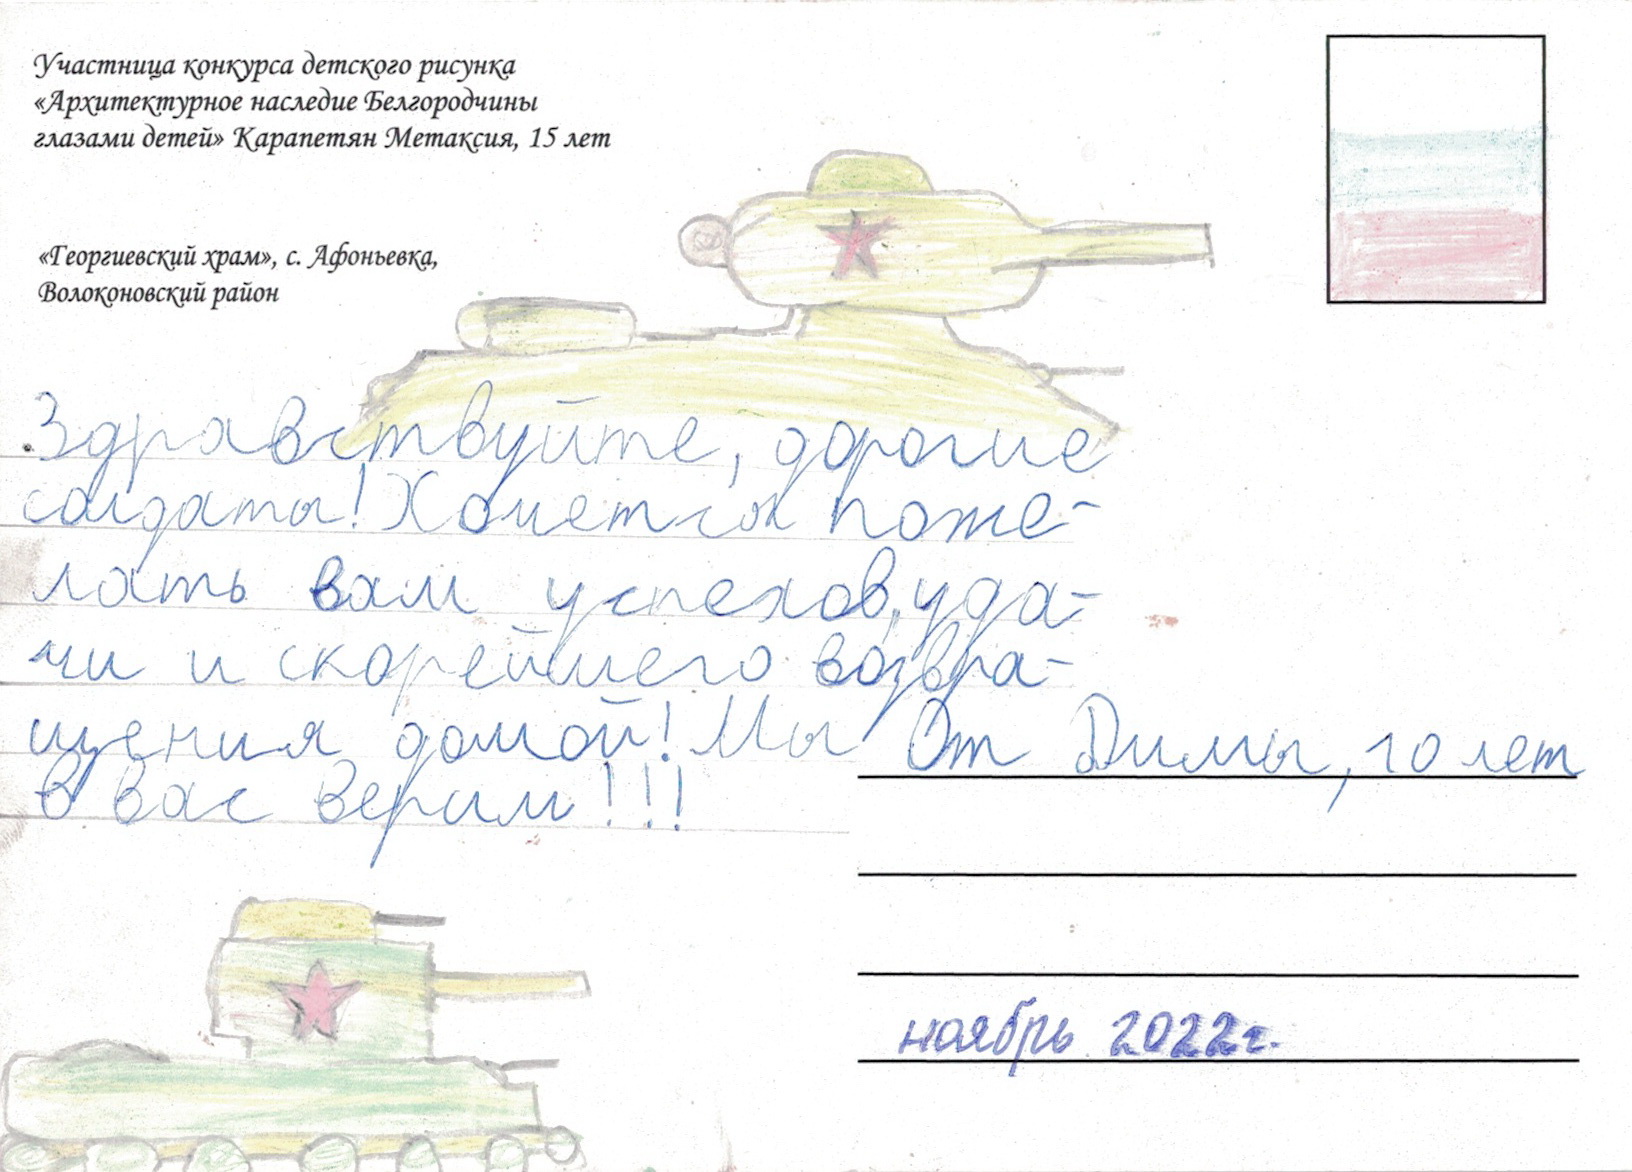 Участница конкурса детского рисунка
«Архитектурное наследие Белгородчины
глазами детей» Карапетян Метаксия, 15 лет
«Георгиевский храм», с. Афоньевка,
Волоконовский район
Здравствуйте, дорогие
солдаты! Хочется поже-
лать вам успехов, уда-
чи и скорейшего возвра-
щения домой! Мы
в вас верим!!!
От Димы, 10 лет
ноябрь 2022г.